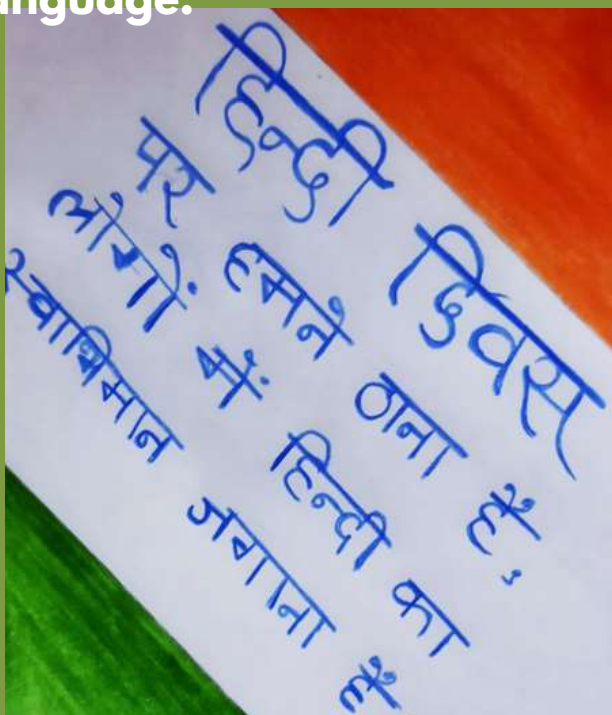 anguage.
हिन्दी दिवस
पर हमने ठाना हैं,
लोगों में हिन्दी का
स्वाभिमान जगाना हैं